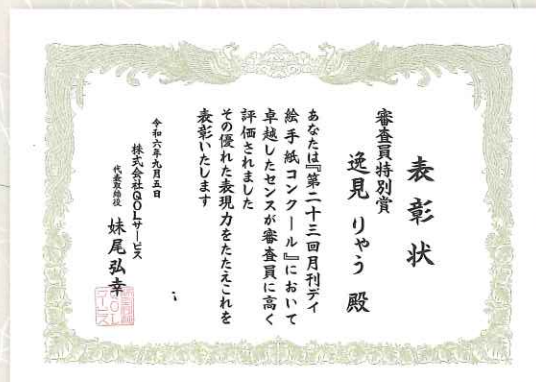 表彰状
審査員特別賞
逸見 りゃう 殿
あなたは『第二十三回月刊デイ
絵手紙コンクール』において
卓越したセンスが審査員に高く
評価されました
その優れた表現力をたたえこれを
表彰いたします
令和六年九月五日
株式会社QOLサービス
代表取締役 妹尾弘幸